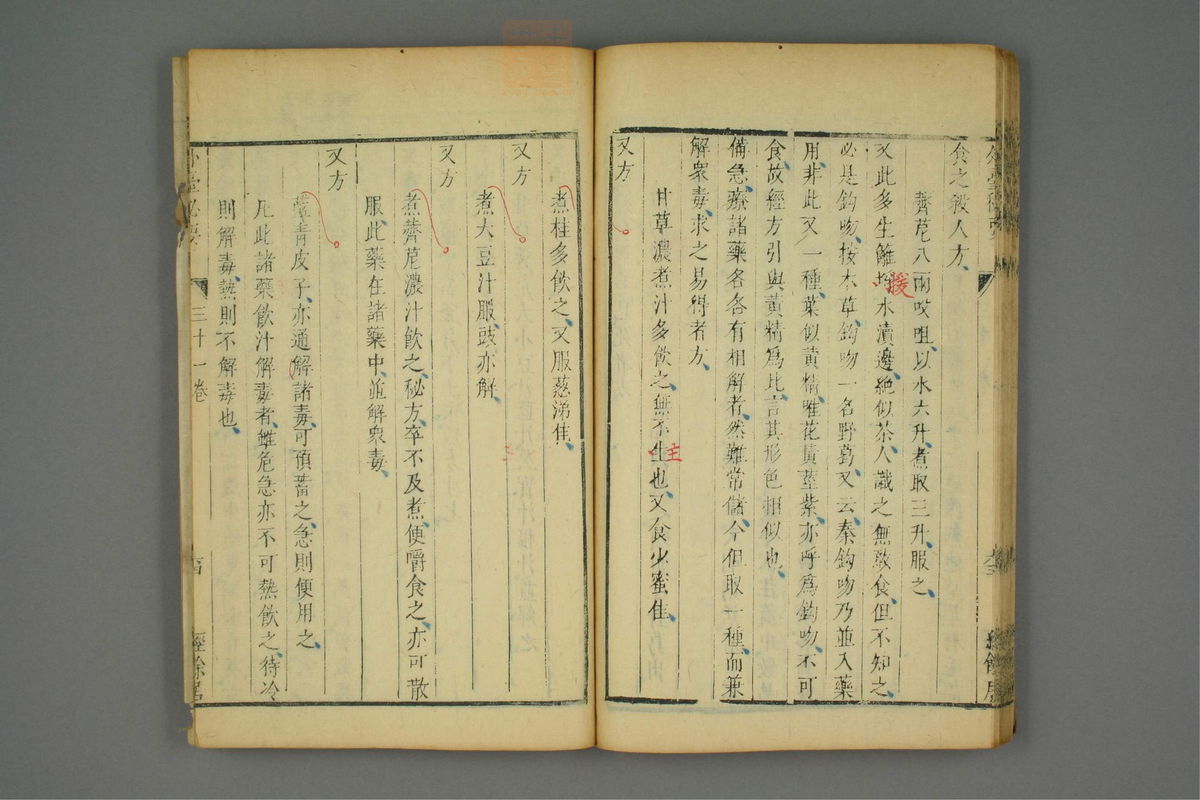 食之殺人方
薺苨八兩㕮咀以水六升煮取三升服之
又此多生籬埳水瀆邊絕似茶人識之無敢食但不知之
援
必是鈎吻按本草鈎吻一名野葛又云秦鈎吻乃並入藥
用非此又一種葉似黃精唯花黃莖紫亦呼爲鈎吻不可
食故經方引與黃精爲比言其形色相似也
備急療諸藥各各有相解者然難常儲今但取一種而兼
解衆毒求之易得者方
甘草濃煮汁多飲之無不生也又食少蜜佳
主
又方
煮桂多飲之又服葱涕佳
又方
煮大豆汁服豉亦解
又方
煮薺苨濃汁飲之秘方卒不及煮便嚼食之亦可散
服此藥在諸藥中並解衆毒
又方
藍青皮子亦通解諸毒可預畜之急則便用之
凡此諸藥飲汁解毒者雖危急亦不可熱飲之待冷
則解毒熱則不解毒也
外臺秘要
三十一卷
經餘居